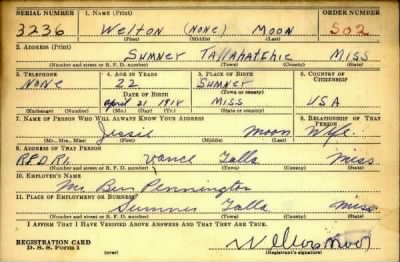 SERIAL NUMBER 1. NAME (Print) ORDER NUMBER
3236 Welton (NONE) Moon 502
(First) (Middle) (Last)
2. ADDRESS (Print)
Sumner Tallahatchie Miss
(Number and street or R. F. D. number) (Town) (County) (State)
3. TELEPHONE 4. AGE IN YEARS 5. PLACE OF BIRTH 6. COUNTRY OF CITIZENSHIP
None 22 Sumner
DATE OF BIRTH (Town or county)
April 21 1918 Miss USA
(Exchange) (Number) (Mo.) (Day) (Yr.) (State or country)
7. NAME OF PERSON WHO WILL ALWAYS KNOW YOUR ADDRESS 8. RELATIONSHIP OF THAT PERSON
Jessie Moon Wife
(Mr., Mrs., Miss) (First) (Middle) (Last)
9. ADDRESS OF THAT PERSON
RFD R1 Vance Talla Miss
(Number and street or R. F. D. number) (Town) (County) (State)
10. EMPLOYER'S NAME
Mr Ben Pennington
11. PLACE OF EMPLOYMENT OR BUSINESS
Sumner Talla Miss
(Number and street or R. F. D. number) (Town) (County) (State)
I AFFIRM THAT I HAVE VERIFIED ABOVE ANSWERS AND THAT THEY ARE TRUE.
REGISTRATION CARD
D. S. S. Form 1 (over) (Registrant's signature)